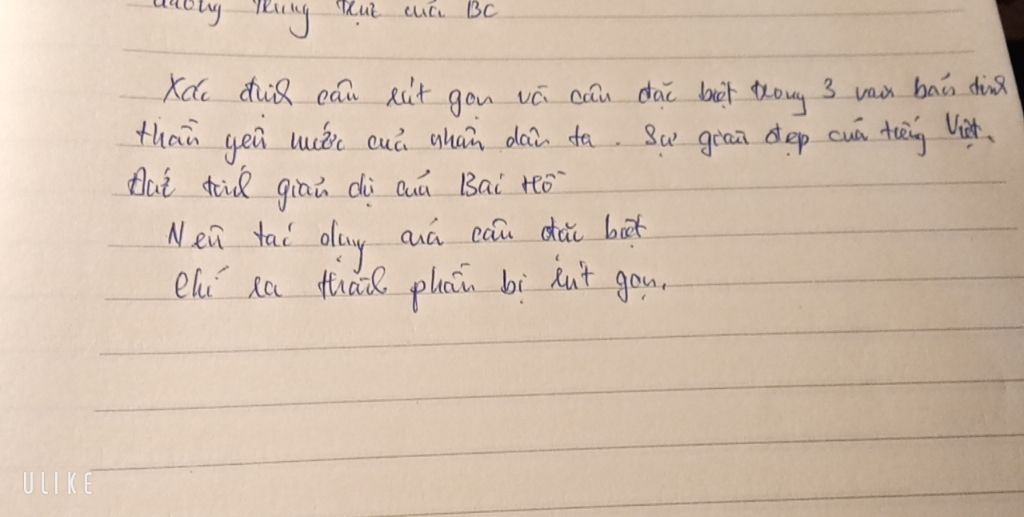 đường trung trực của BC
Xác định câu rút gọn và câu đặc biệt trong 3 văn bản tinh
thần yêu nước của nhân dân ta. Sự giàu đẹp của tiếng Việt.
Đức tính giản dị của Bác Hồ
Nêu tác dụng của câu đặc biệt
Chỉ ra thành phần bị rút gọn.
ULIKE